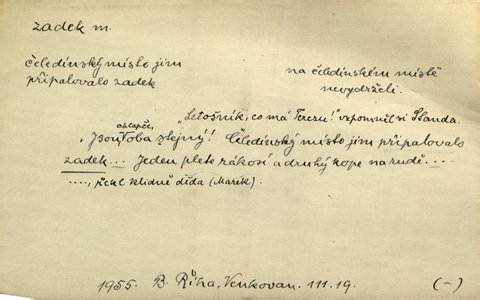 zadek m.
čeledínský místo jim
připalovalo zadek
na čeledínském místě
nevydrželi.
„Letošník, co má Terezu!" vzpomněl si Standa.
chlapče,
„Jsou oba stejný! Čeledínský místo jim připalovalo
zadek... Jeden plete rákosí a druhý kope na rudě....
....., řekl klidně děda (Marek).
1955. B. Říha, Venkovan. III.19. (–)